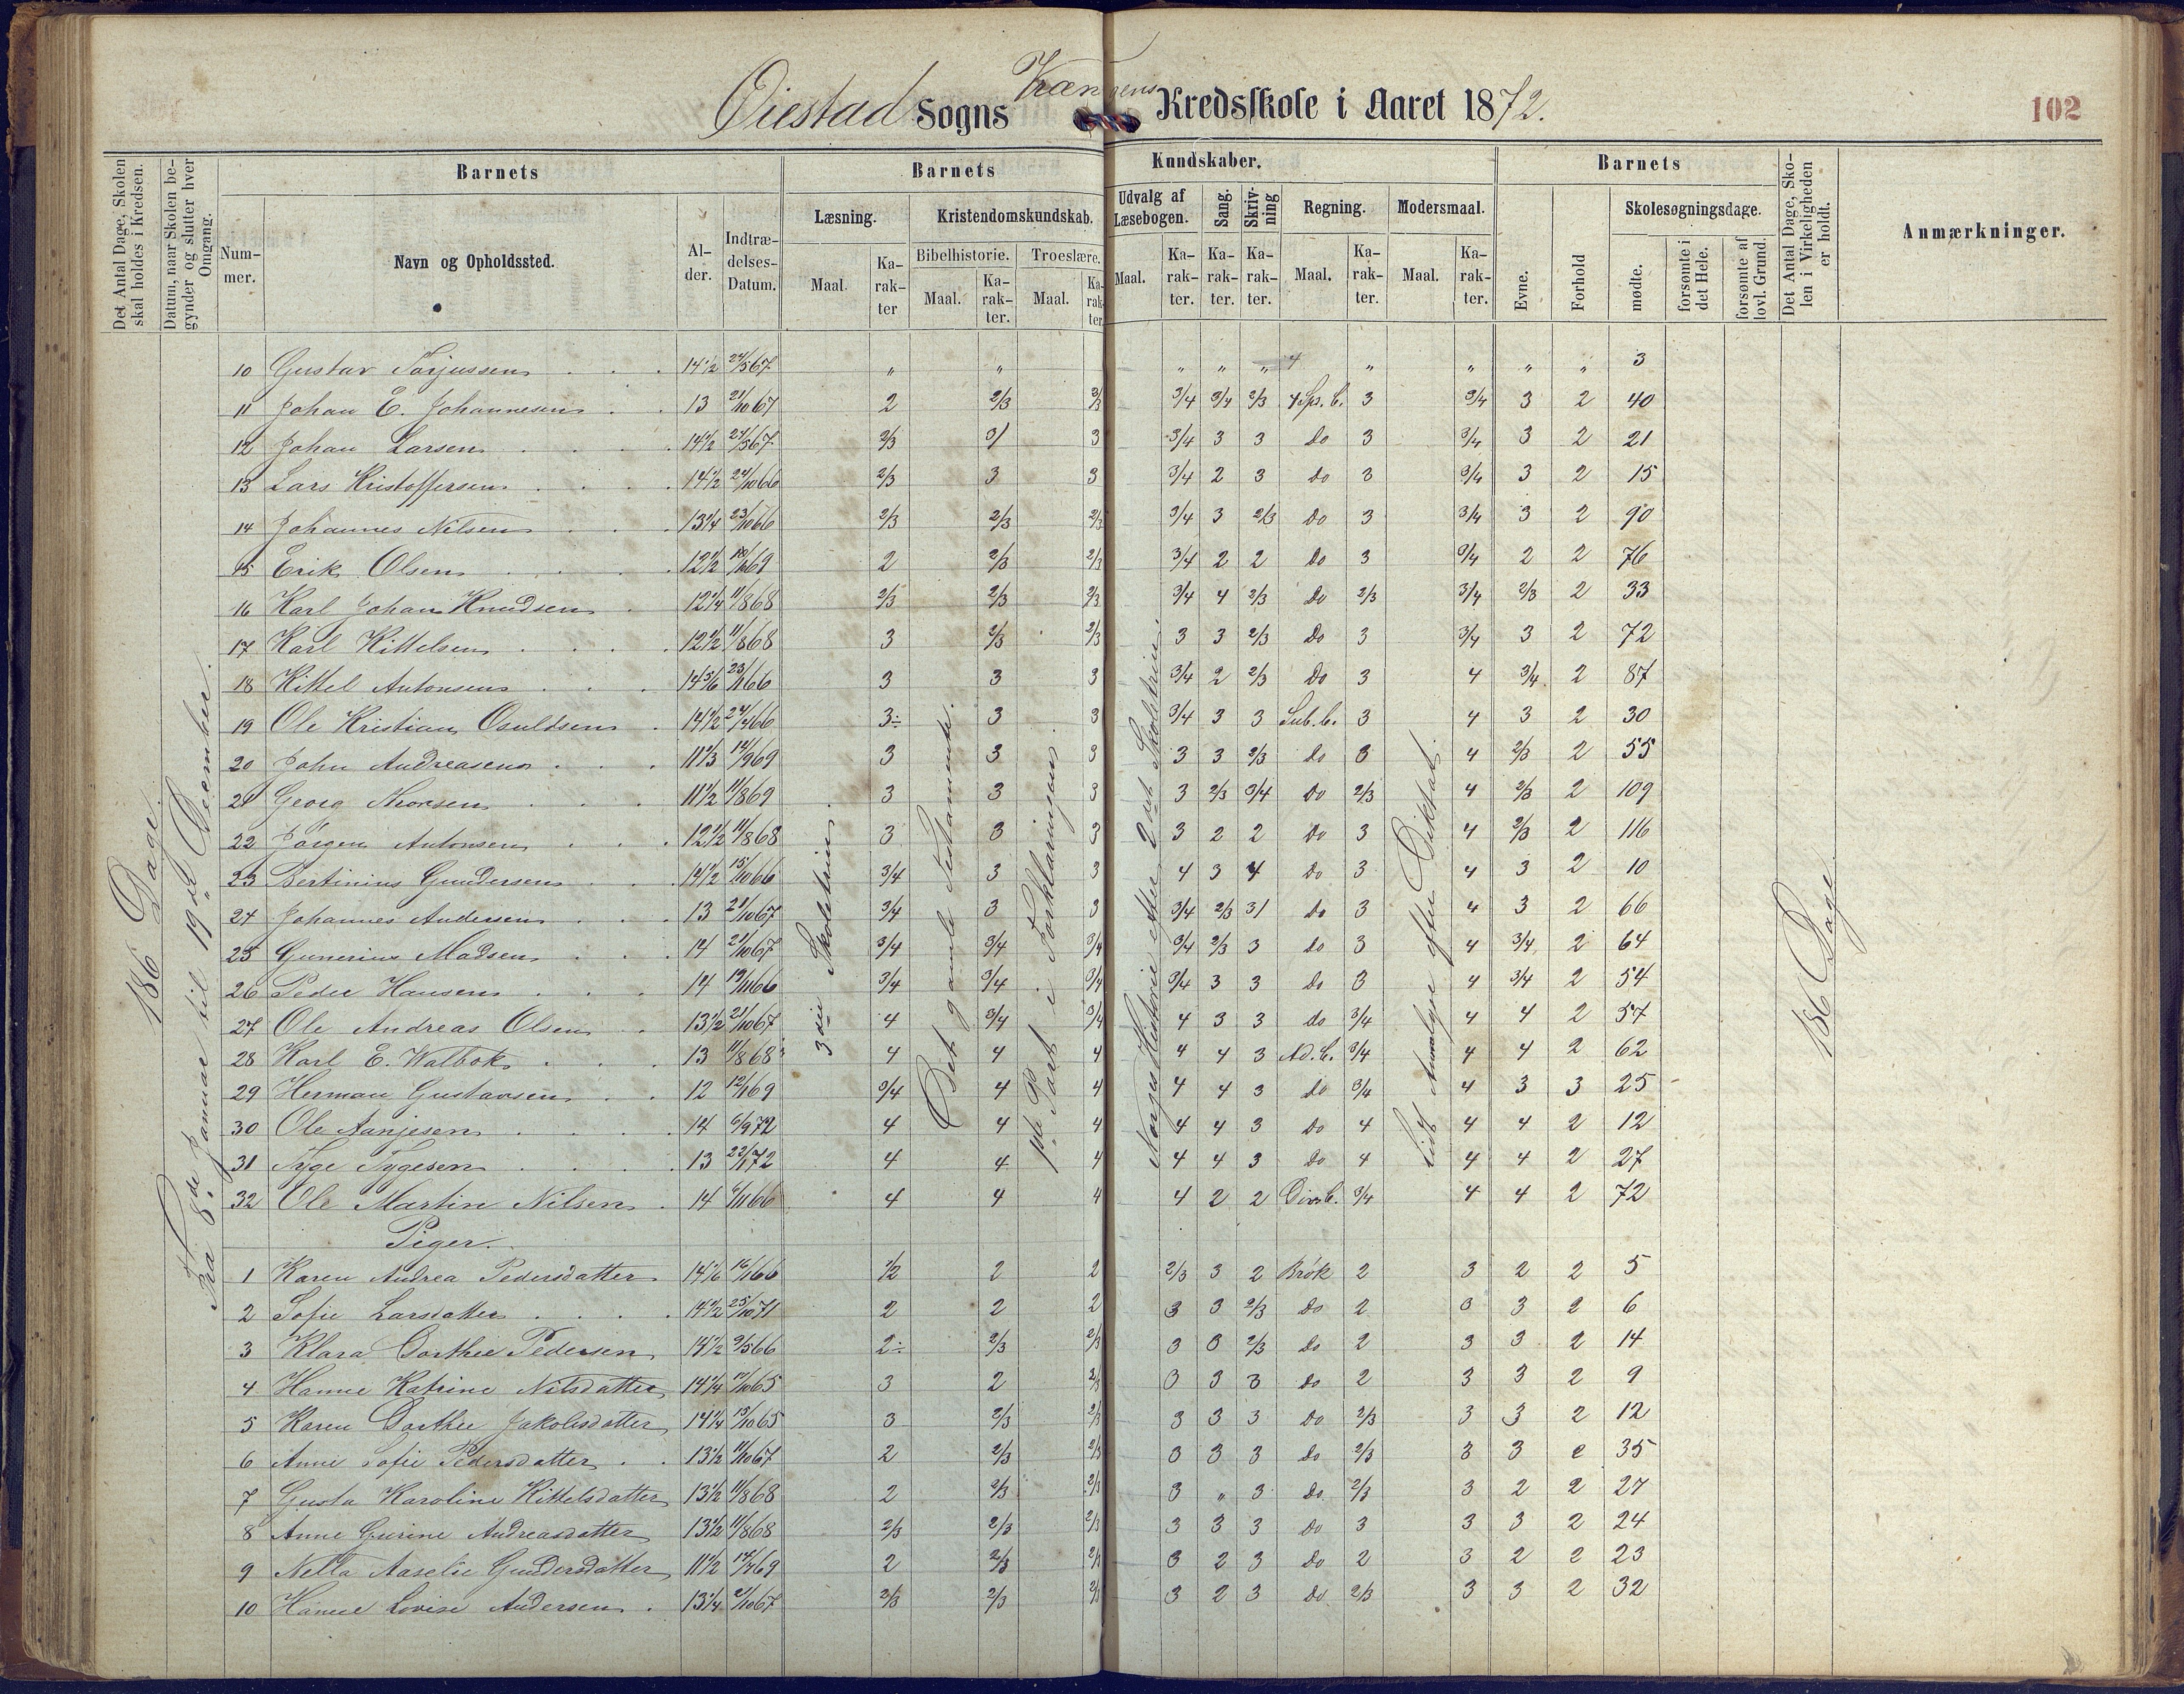 Øiestad Sogns Vrængens Kredsskole i Aaret 1872.
102
Det Antal Dage, Skolen skal holdes i Kredsen.
Datum, naar Skolen begynder og slutter hver Omgang.
Barnets
Nummer.
Navn og Opholdssted.
Alder.
Indtrædelses-Datum.
Barnets Kundskaber.
Læsning.
Maal.
Karakter
Kristendomskundskab.
Bibelhistorie.
Maal.
Karakter.
Troeslære.
Maal.
Karakter.
Udvalg af Læsebogen.
Maal.
Karakter.
Sang.
Karakter.
Skrivning
Karakter.
Regning.
Maal.
Karakter.
Modersmaal.
Maal.
Karakter.
Barnets
Evne.
Forhold
Skolesøgningsdage.
mødte.
forsømte i det Hele.
forsømte af lovl. Grund.
Det Antal Dage, Skolen i Virkeligheden er holdt.
Anmærkninger.
186 Dage.
Fra 8de Januar til 19de December.
3die Skoletrin.
Det gamle Testamente.
1ste Part i Forklaringen.
Norges Historie efter 2det Skoletrin.
Lidt Analyse efter Diktat.
186 Dage
10 Gustav Torjussen 14 1/2 24/5 67 " " " " " 4 " " " " 3
11 Johan E. Johannesen 13 21/10 67 2 2/3 2/3 3/4 3/4 2/3 4 Sps. b. 3 3/4 3 2 40
12 Johan Larsen 14 1/2 24/5 67 2/3 3/ 3 3/4 3 3 do 3 3/4 3 2 21
13 Lars Kristoffersen 14 1/2 24/10 66 2/3 3 3 3/4 2 3 do 3 3/4 3 2 15
14 Johannes Nilsen 13 1/4 23/10 66 2/3 2/3 2/3 3/4 3 2/3 do 3 3/4 3 2 90
15 Erik Olsen 12 1/2 69 2 2/3 2/3 3/4 2 2 do 3 3/4 2 2 76
16 Karl Johan Knudsen 12 1/4 11/8 68 2/3 2/3 2/3 3/4 4 2/3 do 2/3 3/4 2/3 2 33
17 Karl Kittelsen 12 1/2 11/8 68 3 2/3 2/3 3 3 2/3 do 3 3/4 3 2 72
18 Kittel Antonsen 14 5/6 23/1 66 3 3 3 3/4 2 2/3 do 3 4 3/4 2 87
19 Ole Kristian Osuldsen 14 1/2 24/4 66 3÷ 3 3 3/4 3 3 Sub. b. 3 4 3 2 30
20 John Andreasen 11 1/3 14/9 69 3 3 3 3 3 2/3 do 3 4 2/3 2 55
21 Georg Thorsen 11 1/2 11/8 69 3 3 3 3 2/3 3/4 do 2/3 4 2/3 2 109
22 Jörgen Antonsen 12 1/2 11/8 68 3 3 3 3 2 2 do 3 4 2/3 2 116
23 Bertinius Gundersen 14 1/2 15/10 66 3/4 3 3 4 3 4 do 3 4 3 2 10
24 Johannes Andersen 13 21/10 67 3/4 3 3 3/4 2/3 3/ do 3 4 3 2 66
25 Gunerius Madsen 14 21/10 67 3/4 3/4 3/4 3/4 2/3 3 do 3 4 3/4 2 64
26 Peder Hansen 14 19/11 66 3/4 3/4 3/4 3/4 3 3 do 3 4 3/4 2 54
27 Ole Andreas Olsen 13 1/2 21/10 67 4 3/4 3/4 4 3 3 do 3/4 4 4 2 57
28 Karl E. Walbok 13 11/8 68 4 4 4 4 4 3 Ad. b. 3/4 4 4 2 62
29 Herman Gustavsen 12 12/1 69 3/4 4 4 4 4 3 do 3/4 4 3 3 25
30 Ole Aanjesen 14 6/9 72 4 4 4 4 4 3 do 4 4 4 2 12
31 Tyge Tygesen 13 23/1 72 4 4 4 4 4 3 do 4 4 4 2 27
32 Ole Martin Nilsen 14 6/11 66 4 4 4 4 2 2 Divs b. 3/4 4 4 2 72
Piger.
1 Karen Andrea Pedersdatter 14 1/6 16/1 66 1/2 2 2 2/3 3 2 Brök 2 3 2 2 5
2 Sofie Larsdatter 14 1/2 25/10 71 2 2 2 3 3 2/3 do 2 3 3 2 6
3 Klara Dorthee Pedersen 14 1/2 9/5 66 2÷ 2/3 2/3 3 3 2/3 do 2 3 3 2 14
4 Hanne Katrine Nilsdatter 14 1/4 17/10 65 3 2 2/3 3 3 3 do 2 3 3 2 9
5 Karen Dorthee Jakobsdatter 14 1/4 15/10 65 3 2/3 2/3 3 3 3 do 2/3 3 3 2 12
6 Anne Sofie Pedersdatter 13 1/2 11/10 67 2 2/3 2/3 3 3 3 do 2/3 3 3 2 35
7 Gusta Karoline Kittelsdatter 13 1/2 11/8 68 2 2/3 2/3 3 " 3 do 2/3 3 2 2 27
8 Anne Gurine Andreasdatter 13 1/2 11/8 68 2/3 2/3 2/3 3 3 3 do 3 3 3 2 24
9 Nella Aaselie Gundersdatter 11 1/2 14/4 69 2 2/3 2/3 3 2 3 do 2 3 2 2 23
10 Hanne Lovise Andersen 13 1/4 21/10 67 2/3 2/3 2/3 3 2 3 do 2/3 3 3 2 32